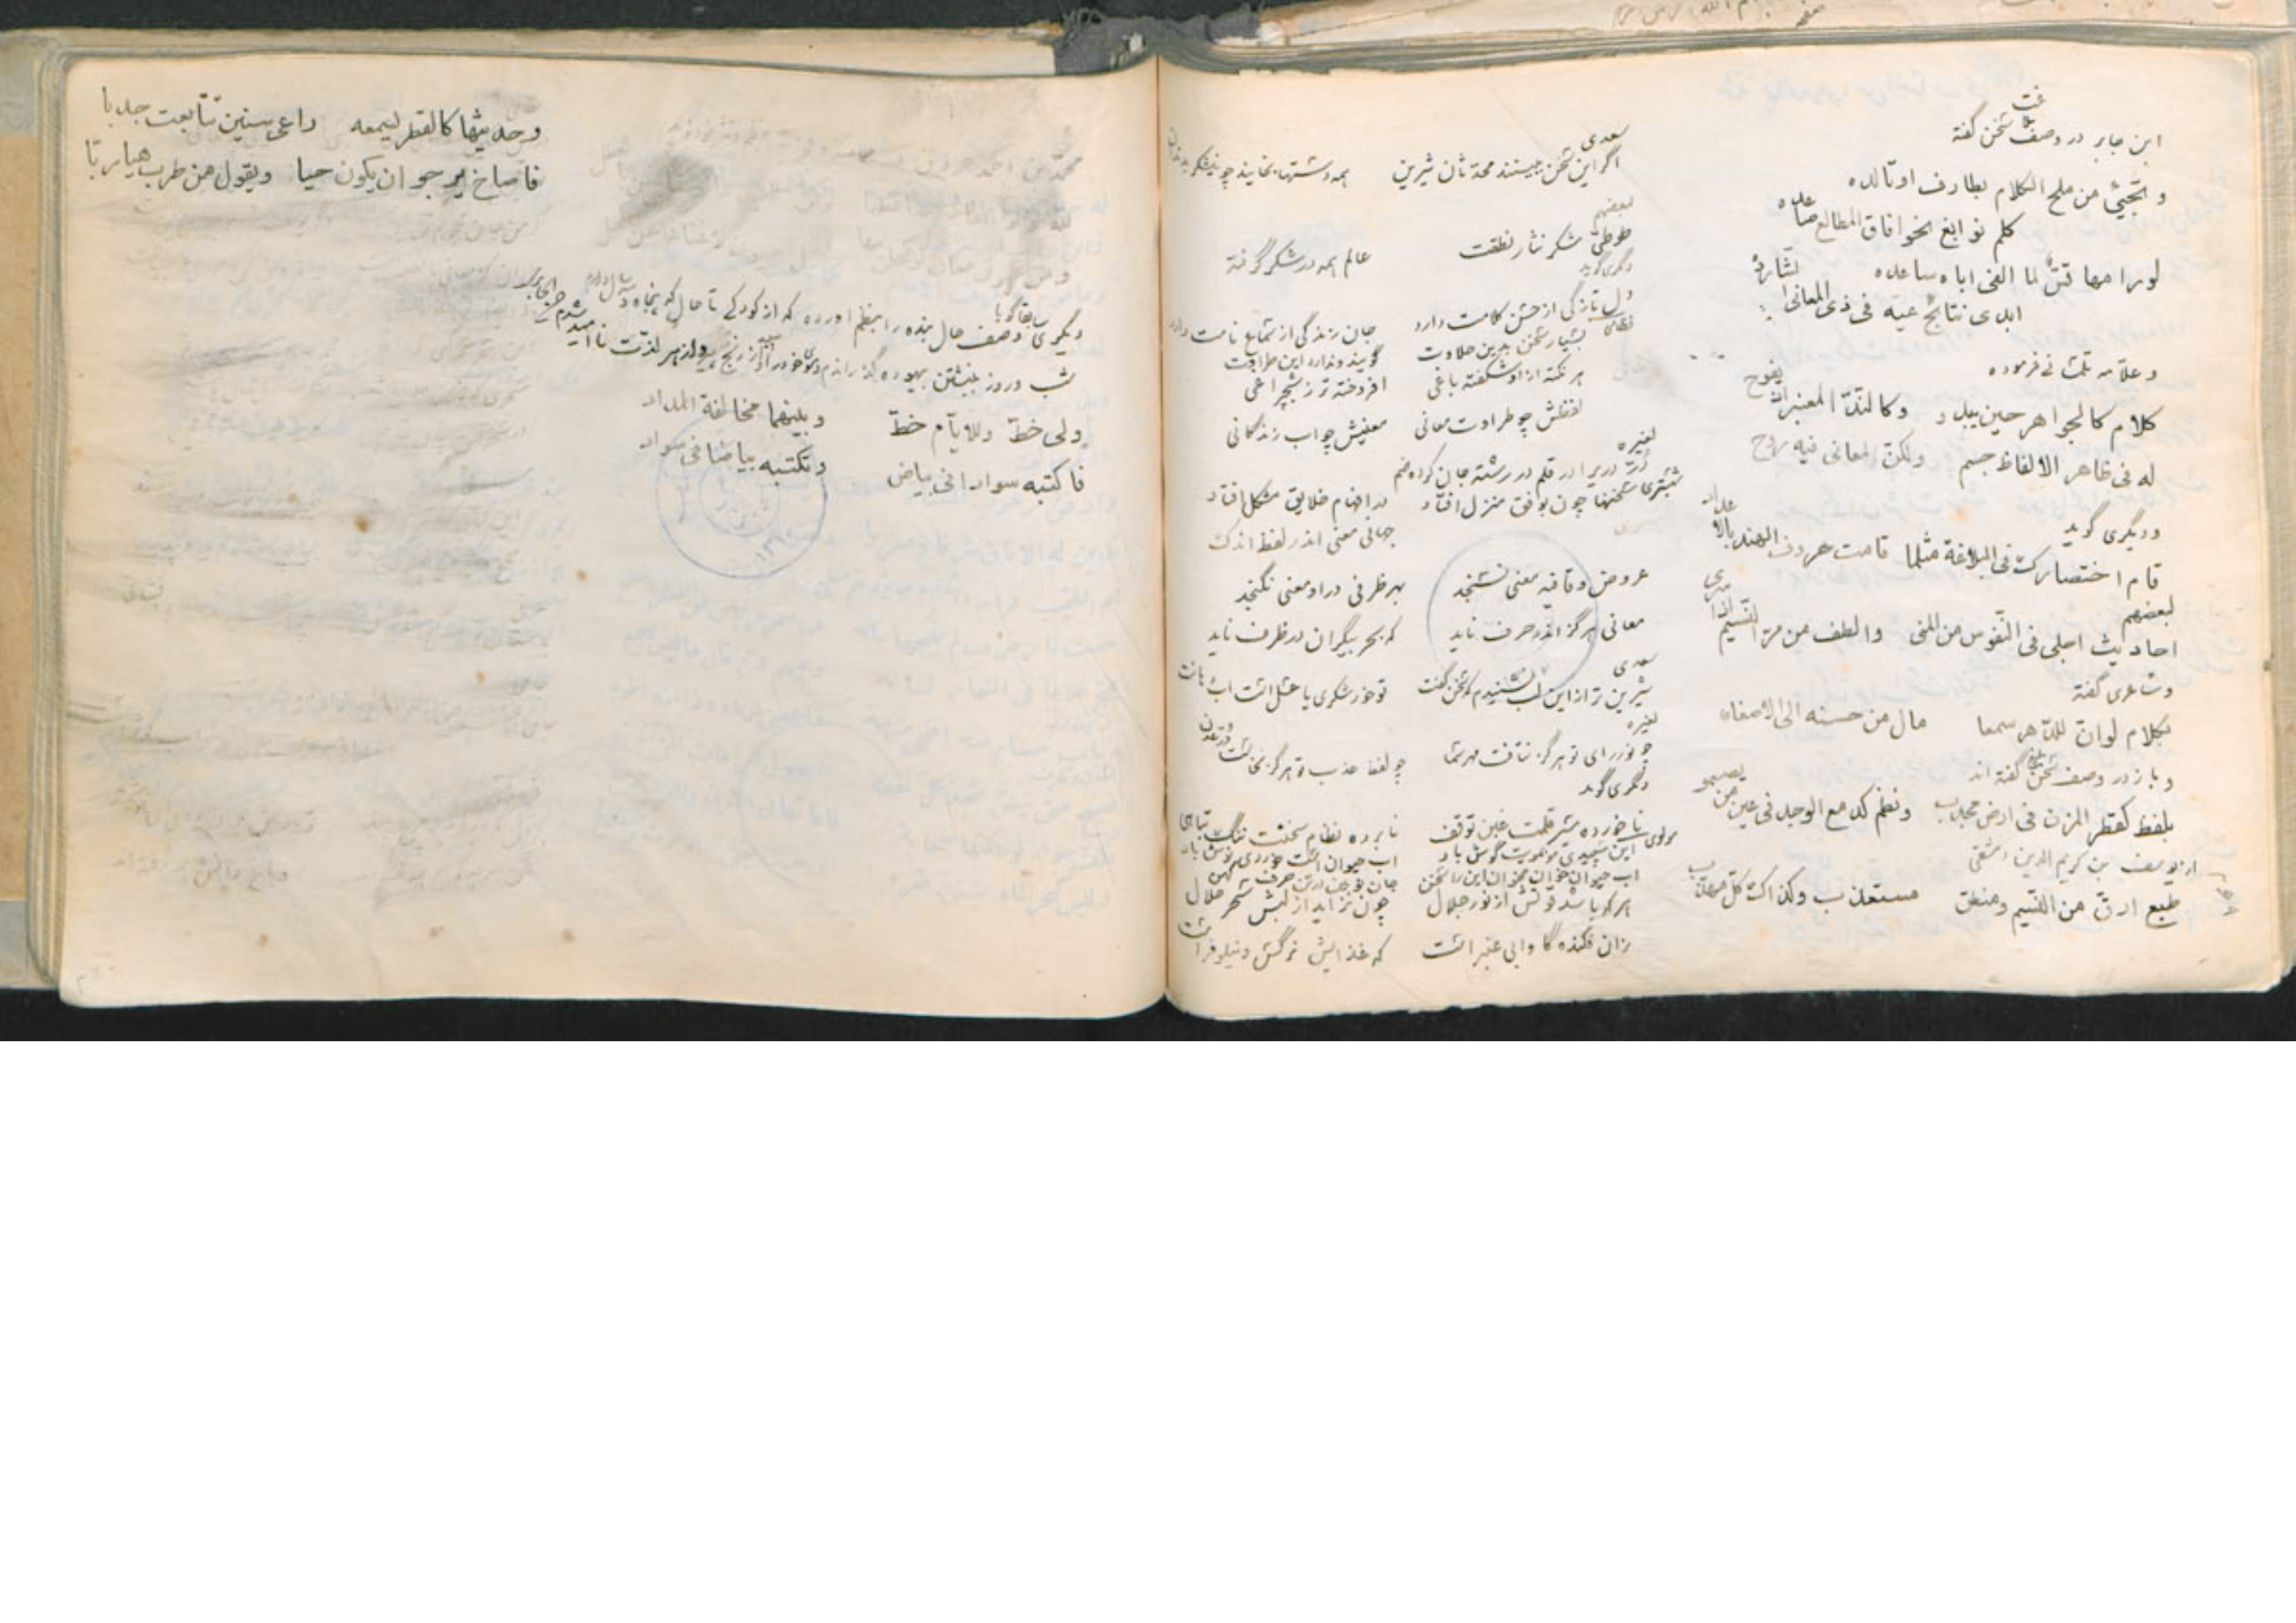 ابن جابر در وصف سخن گفته
و تجیئ من ملح الکلام بطارف او تالده
کلم نوابغ نحو افاق المطالع صاعده
لو رامها قس لما الفی اباه ساعده
ابدی نتائج عیه فی ذی المعانی
و علامه تفتازانی فرموده
کلام کالجواهر حین یبدو و کالند المعنبر اذ یفوح
له فی ظاهر الالفاظ جسم ولکن المعانی فیه روح
و دیگری گوید
قام اختصارک فی البلاغة مثلما قامت حروف الهند بالاعداد
لبعضهم
احادیث احلی فی النفوس من المنی والطف من مر النسیم اذا سری
و شاعری گفته
بکلام لو ان للدهر سمعا مال من حسنه الی الاصغاء
و باز در وصف سخن گفته اند
بلفظ کقطر المزن فی ارض مجدب
از یوسف بن کریم الدین دمشقی
طبع ارق من النسیم و منطق مستعذب و کذاک کل مهذب
سعدی
اگر این سخن ببینند محدثان شیرین همه دستها بخایند چو نیشکر بدندان
لبعضهم
طوطی شکر نثار نطقت عالم همه در شکر گرفته
دیگری گوید
دل تازگی از حسن کلامت دارد جان زندگی از نامت دارد
نظامی بسیار سخن بدین حلاوت گویند و ندارد این طراوت
هر نکته از او شکفته باغی افروخته تر ز شبچراغی
لفظش چو طراوت معانی معنیش چو آب زندگانی
لغیره
در دری را در قلم در رشته جان کرده ضم جهانی معنی اندر لفظ اندک
شبستری سخنها چون بوفق منزل افتاد در افهام خلایق مشکل افتاد
عروض و قافیه معنی نسنجد بهر ظرفی در او معنی نگنجد
معانی هرگز اندر حرف ناید که بحر بیکران در ظرف ناید
سعدی
شیرین تر از این لب نشنیدم که سخن گفت تو خود شکری یا عسل است آب دهانت
لغیره
چو نور رای تو هرگز نتافت مهر سما چو لفظ عذب تو هرگز نخاست در عدن
دیگری گوید
ناخورده سر قلمت عین توقف نابرده نظام سخنت ننگ تباهی
مولوی این سپیدی مویت گوش باد آب حیوان است خوردی نوش باد
آب حیوان خوان مخوان این را سخن جان نو بین در تن حرف کهن
هر که باشد قوتش از نور جلال چون نزاید از لبش سحر حلال
زان فکنده گاو آبی عنبر است که غذایش نرگس و نیلوفر است
و حدیثها کالقطر لیسمعه راعی سنین تتابعت جدبا
فاصاخ یرجو ان یکون حیا و یقول من طرب هیا ربا
دیگری سابقا گویا وصف حال بنده را بنظم اورده که از کودکی تا حال که پنجاه و سال دارم
شب و روز بنبشتن بیهوده گذراندم و از هر لذت ناامید شدم
ولی خط وللایام خط و بینهما مخالفة المداد
فاکتبه سوادا فی بیاض و تکتبه بیاضا فی سواد